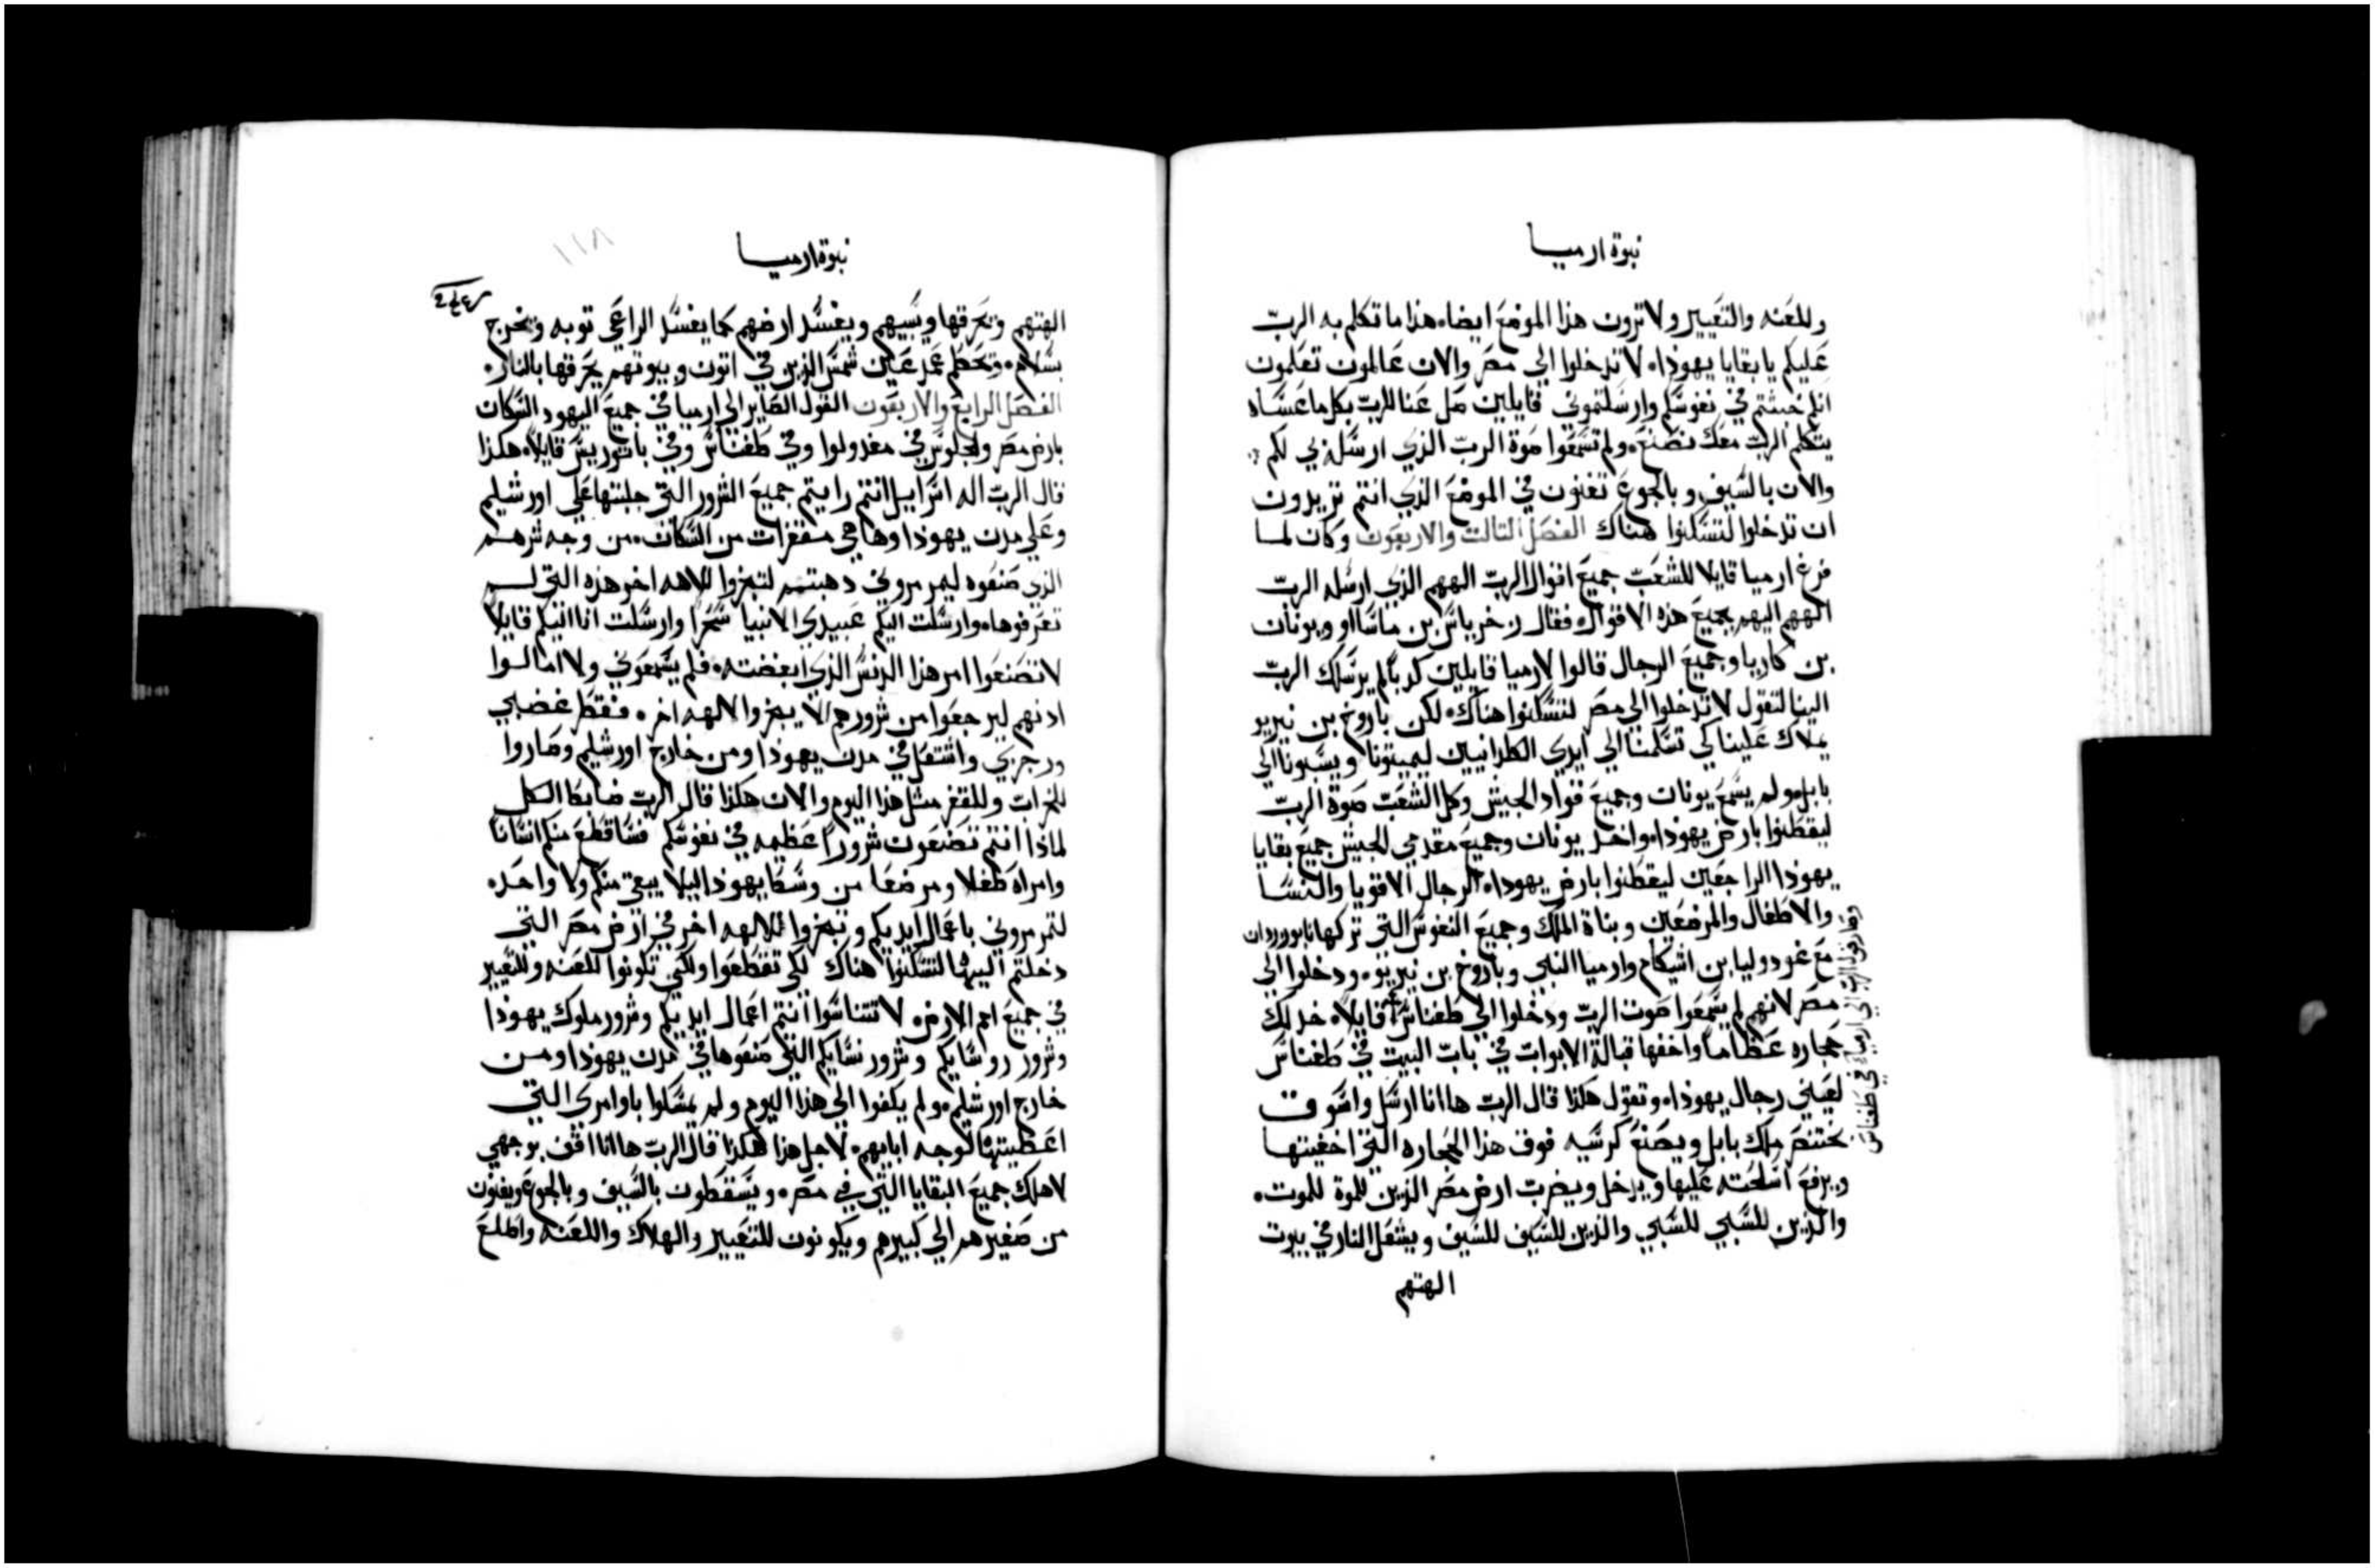 نبوة ارميا
وللعنه والتعيير ولا ترون هذا الموضع ايضا. هذا ما تكلم به الربّ
عليكم يا بقايا يهوذا. لا تدخلوا الي مصر والان عالمون تعلمون
انكم خبثتم في نفوسكم وارسلتموني قايلين صل عنا للرب بكل ما عساه
يتكلم الرب معك نصنع. ولم تسمعوا صوة الربّ الذي ارسلني لكم
والان بالسيف وبالجوع تفنون في الموضع الذي انتم تريدون
ان تدخلوا لتسكنوا هناك الفصل التالت والاربعون وكان لما
فرغ ارميا قايلا للشعب جميع اقوال الربّ الههم الذي ارسله الربّ
الههم اليهم بجميع هذه الاقوال. فقال زخرياس بن ماساو ويونان
بن كاريا وجميع الرجال قالوا لارميا قايلين كدباً لم يرسلك الربّ
الينا لتقول لا تدخلوا الي مصر لتسكنوا هناك. لكن باروخ بن نيريو
يملاك علينا كي تسلمنا الي ايدي الكلدانيين ليميتونا ويسبونا الي
بابل. ولم يسمع يونان وجميع قواد الجيش وكل الشعب صوة الربّ
ليقطنوا بارض يهوذا. واخد يونان وجميع مقدمي الجيش جميع بقايا
يهوذا الراجعين ليقطنوا بارض يهودا. الرجال الاقويا والنسا
والاطفال والمرضعين وبناة الملك وجميع النفوس التي تركها نابوزردان
مع غودوليا بن اشيكام وارميا النبي وباروخ بن نيريو. ودخلوا الي
مصر لانهم لم يسمعوا صوت الربّ ودخلوا الي طفناس قايلاً. خد لك
حجاره عظاماً واخفها قبالة الابواب في باب البيت في طفناس
لعيني رجال يهوذا. وتقول هكذا قال الرب ها انا ارسل واسوق
بختنصر ملك بابل ويصنع كرسيه فوق هذا الحجاره التي اخفيتها
ويرفع اسلحته عليها ويدخل ويضرب ارض مصر الذين للموة للموت.
والذين للسبي للسبي والذين للسيف للسيف ويشعل النار في بيوت
الهتهم
وصار قول الرب الي ارميا في طفناس
نبوة ارميا
١١٨
الهتهم وتحرقها ويسبيهم ويغسل ارضهم كما يغسل الراعي توبه ويخرج
بسلام. وتحطم عمد عين شمس الذين في اتون وبيوتهم يحرقها بالنار.
الفصل الرابع والاربعون القول الصاير الي ارميا في جميع اليهود السكان
بارض مصر والجلوس في مغدولوا وفي طفناس وفي باتوريس قايلاً. هكذا
قال الربّ اله اسراييل انتم رايتم جميع الشرور التي جلبتها علي اورشليم
وعلي مدن يهوذا وها هي مقفرات من السكان. من وجه شرهم
الذي صنعوه ليمرمروني دهبتم لتبخروا للاهه اخر هذه التي لم
تعرفوها. وارسلت اليكم عبيدي الانبيا سحراً وارسلت انا اليكم قايلاً
لا تصنعوا امر هذا الدنس الذي ابغضته. فلم يسمعوني ولا امالوا
ادنهم ليرجعوا من شرورهم لالا يبخروا لالهه اخر. فقطر غضبي
ورجزي واشتعل في مدن يهوذا ومن خارج اورشليم وصاروا
للخراب وللقفر مثل هذا اليوم والان هكذا قال الرب ضابط الكل
لماذا انتم تصنعون شروراً عظيمه في نفوسكم فساقطع منكم انسانا
وامراه طفلا ومرضعا من وسط يهوذا ليلا يبقي منكم ولا واحده
لتمرمروني باعمال ايديكم وتبخروا لالهه اخر في ارض مصر التي
دخلتم اليها لتسكنوا هناك لكي تقطعوا ولكي تكونوا للعنه وللتعيير
في جميع امم الارض. لا تتناسوا انتم اعمال ايديكم وشرور ملوك يهوذا
وشرور روسايكم وشرور نسايكم التي صنعوها في مدن يهوذا ومن
خارج اورشليم. ولم يكفوا الي هذا اليوم ولم يمسكوا باوامري التي
اعطيتها لوجه ابايهم. لاجل هذا هكذا قال الرب ها انا اقف بوجهي
لاهلك جميع البقايا التي في مصر. ويسقطون بالسيف وبالجوع ويفنون
من صغيرهم الي كبيرهم ويكونون للتعيير والهلاك واللعنه والملع